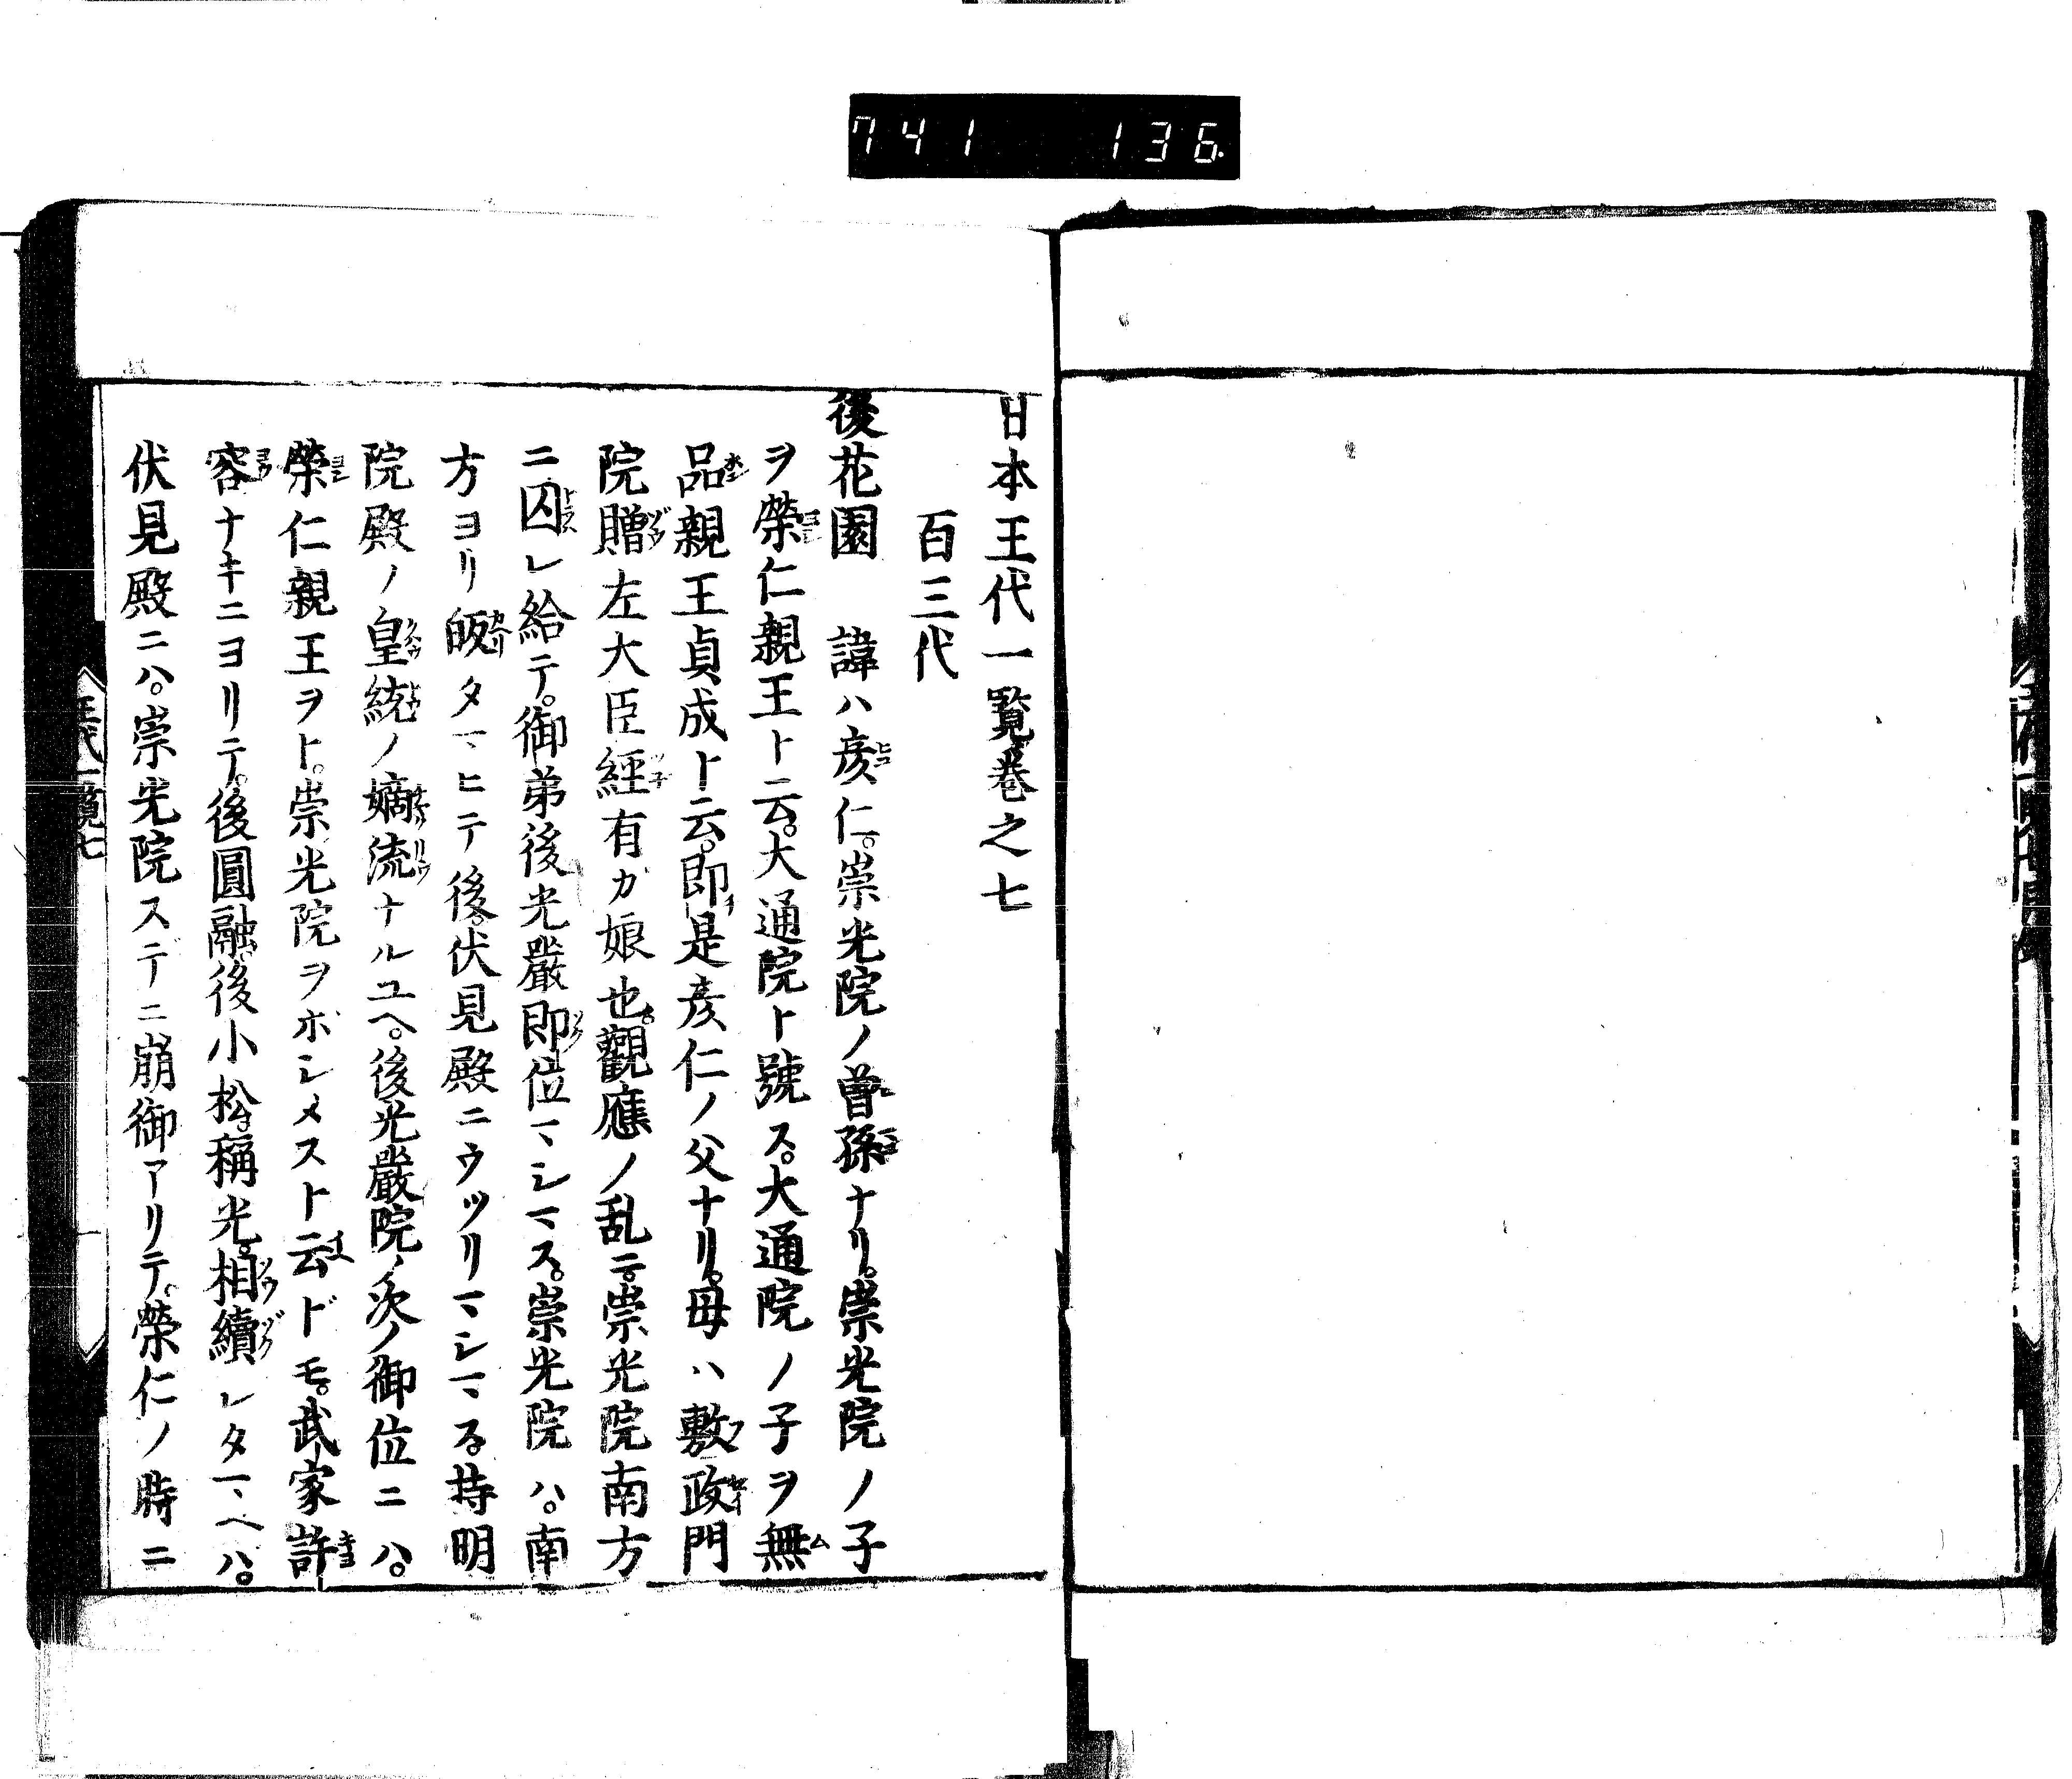 741 136.
日本王代一覧巻之七
百三代
後花園 諱ハ彦仁。崇光院ノ曽孫ナリ。崇光院ノ子
ヲ榮仁親王ト云。大通院ト號ス。大通院ノ子ヲ無
品親王貞成ト云。即是彦仁ノ父ナリ。母ハ敷政門
院贈左大臣經有カ娘也。觀應ノ乱ニ。崇光院南方
ニ囚レ給テ。御弟後光嚴即位マシマス。崇光院ハ。南
方ヨリ皈タマヒテ後。伏見殿ニウツリマシマス。持明
院殿ノ皇統ノ嫡流ナルユヘ。後光嚴院ノ次ノ御位ニハ。
榮仁親王ヲト。崇光院ヲボシメスト云ドモ。武家許
容ナキニヨリテ。後圓融。後小松。稱光。相續シタマヘハ。
伏見殿ニハ。崇光院スデニ崩御アリテ。榮仁ノ時ニ
王代一覧七